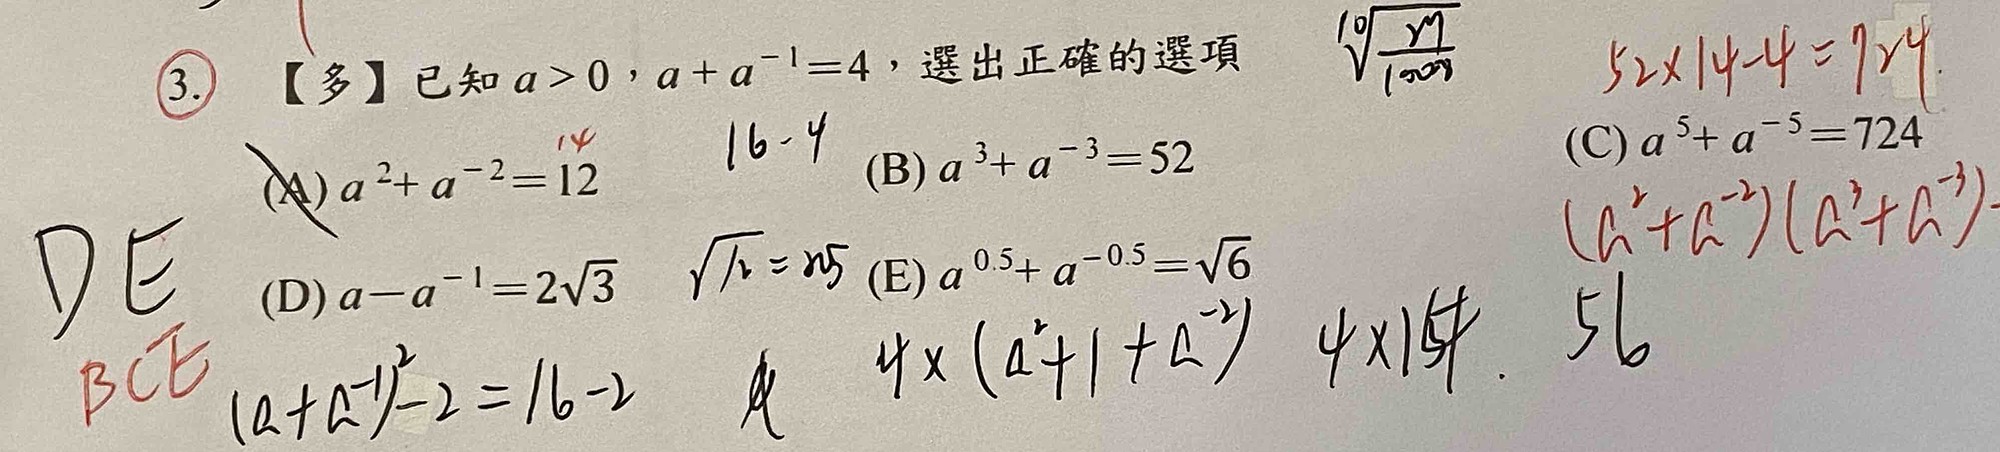 3. 【多】已知 a > 0，a + a⁻¹ = 4，選出正確的選項
52×14-4=724
14
16-4
(A) a² + a⁻² = 12
(B) a³ + a⁻³ = 52
(C) a⁵ + a⁻⁵ = 724
(a²+a⁻²)(a³+a⁻³)-
DE
(D) a − a⁻¹ = 2√3
(E) a^0.5 + a^-0.5 = √6
BCE
(a+a⁻¹)²-2=16-2
4×(a²+1+a⁻²)
56